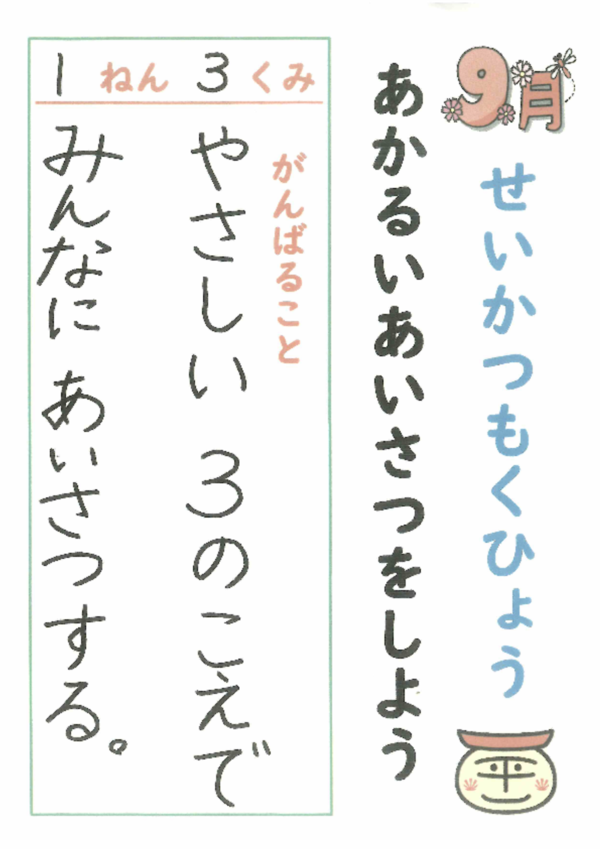 9月
せいかつもくひょう
あかるいあいさつをしよう
1ねん3くみ
がんばること
やさしい 3のこえで
みんなに あいさつする。